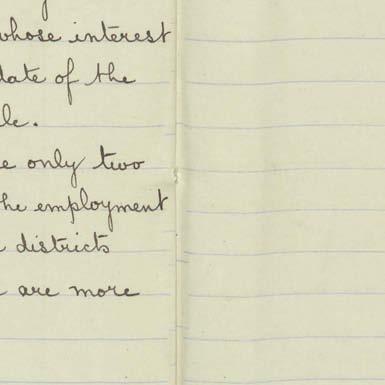 whose interest
date of the
le.
e only two
the employment
districts
are more